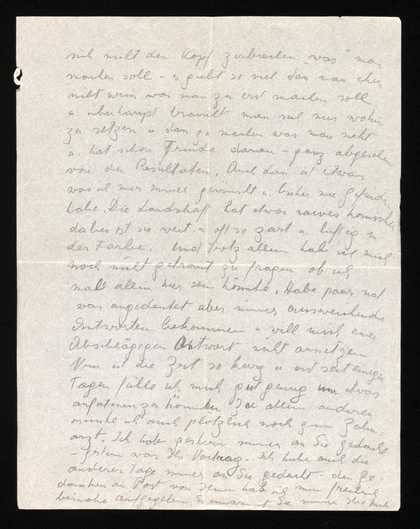 sich nicht den Kopf zerbrechen was man
machen soll - es giebt so viel dass man eher
nicht weiss was man zu erst machen soll
u. überhaupt braucht man sich nur wohin
zu setzen u dann zu machen was man sieht
u. hat schon Freude daran - ganz abgesehen
von den Resultaten. Und das ist etwas
was ich mir immer gewünscht u. bisher nie gefunden
habe. Die Landschaft hat etwas
dabei ist sie weit u. oft so zart u. luftig in
der Farbe. Und trotz allem hab ich mich
noch nicht getraut zu fragen ob ich
nicht allein hier sein könnte. Habe paar mal
was angedeutet aber immer ausweichende
Antworten bekommen u will mich einer
Abschlägigen Antwort nicht aussetzen
Nun ist die Zeit so kurz u. erst seit einigen
Tagen fühle ich mich gut genug um etwas
anfangen zu können. Zu allem anderen
musste ich auch plötzlich noch zum Zahn
arzt. Ich habe gestern immer an Sie gedacht
- gestern war Ihr Vortrag. Ich habe auch die
anderen Tage immer an Sie gedacht - den Ge
danken an Post von Ihnen hab ich
beinahe aufgegeben